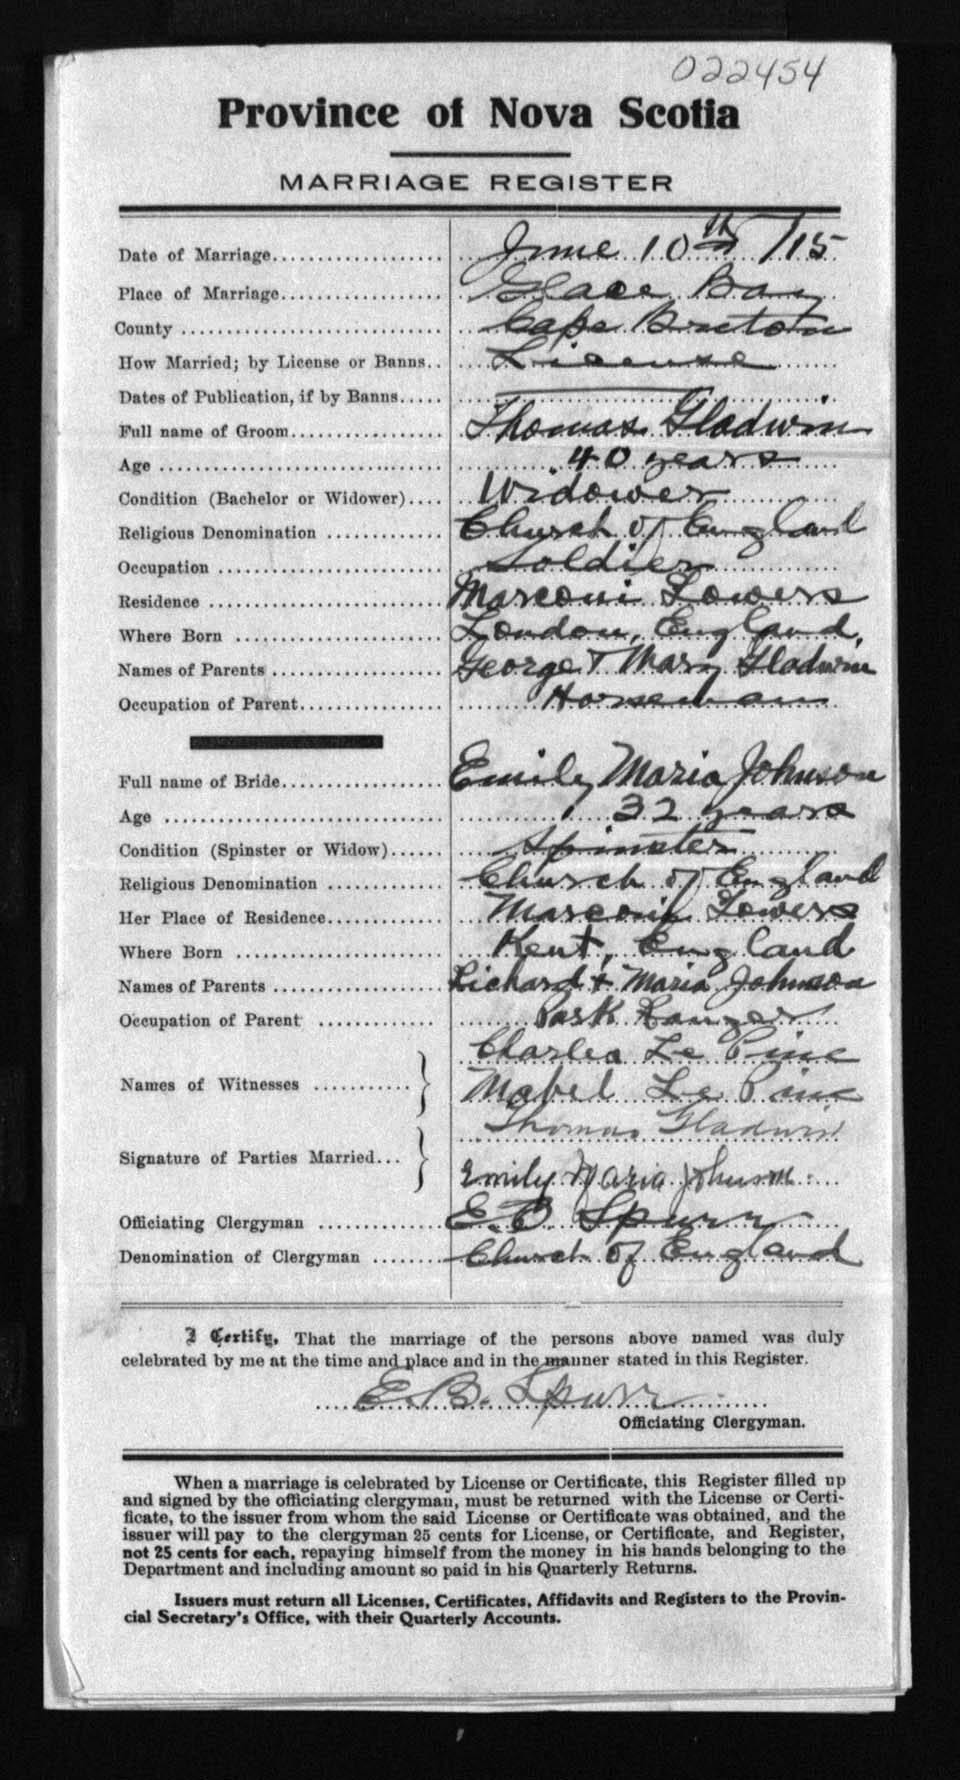 022454
Province of Nova Scotia
MARRIAGE REGISTER
Date of Marriage.................... June 10th /15
Place of Marriage................... Glace Bay
County ............................. Cape Breton
How Married; by License or Banns.. License
Dates of Publication, if by Banns.....
Full name of Groom.................. Thomas Gladwin
Age ................................ 40 years
Condition (Bachelor or Widower).... Widower
Religious Denomination ............. Church of England
Occupation ......................... Soldier
Residence .......................... Marconi Towers
Where Born ......................... London, England,
Names of Parents ................... George + Mary Gladwin
Occupation of Parent................ Horseman
Full name of Bride.................. Emily Maria Johnson
Age ................................ 32 years
Condition (Spinster or Widow)...... Spinster
Religious Denomination ............. Church of England
Her Place of Residence.............. Marconi Towers
Where Born ......................... Kent, England
Names of Parents ................... Richard + Maria Johnson
Occupation of Parent ............... Park Ranger
Names of Witnesses ........... } Charles Le Pine
Mabel Le Pine
Signature of Parties Married... } Thomas Gladwin
Emily Maria Johnson
Officiating Clergyman .............. E. B Spurr
Denomination of Clergyman ........ Church of England
I Certify, That the marriage of the persons above named was duly
celebrated by me at the time and place and in the manner stated in this Register.
E. B. Spurr
Officiating Clergyman.
When a marriage is celebrated by License or Certificate, this Register filled up
and signed by the officiating clergyman, must be returned with the License or Certi-
ficate, to the issuer from whom the said License or Certificate was obtained, and the
issuer will pay to the clergyman 25 cents for License, or Certificate, and Register,
not 25 cents for each, repaying himself from the money in his hands belonging to the
Department and including amount so paid in his Quarterly Returns.
Issuers must return all Licenses, Certificates, Affidavits and Registers to the Provin-
cial Secretary's Office, with their Quarterly Accounts.